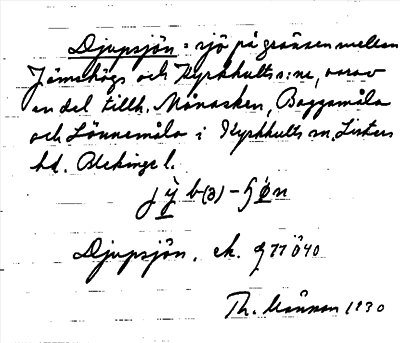 Djupsjön = sjö på gränsen mellan
Jämshögs och Kyrkhults s:nr, varav
en del tillh. Månasken, Boggamåla
och Lönnemåla i Kyrkhults sn, Listers
hd. Blekinge l.
Djupsjön. ek. Ö40
Th. 1930